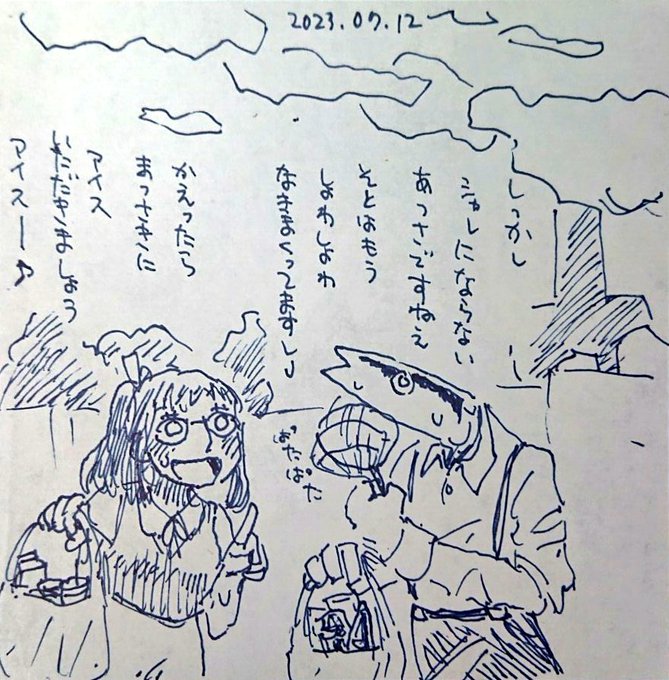 2023.07.12
しっかし
シャレにならない
あつさですねえ
そとはもう
しょわしょわ
なきまくってますしし
かえったら
まっさきに
アイス
いただきましょう
アイスー♪
ぱたぱた